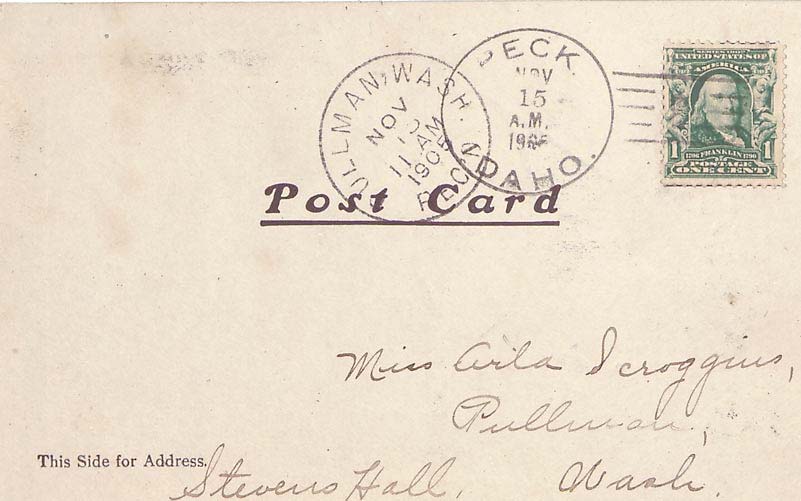 PECK
NOV
15
A.M.
IDAHO.
ULLMAN, WASH.
NOV
11 AM
1905
REC'D.
SERIES 1902
UNITED STATES OF
AMERICA
1706 FRANKLIN 1790
1 POSTAGE 1
ONE CENT
Post Card
Miss Arla Scroggins,
Pullman,
This Side for Address.
Stevens Hall, Wash.